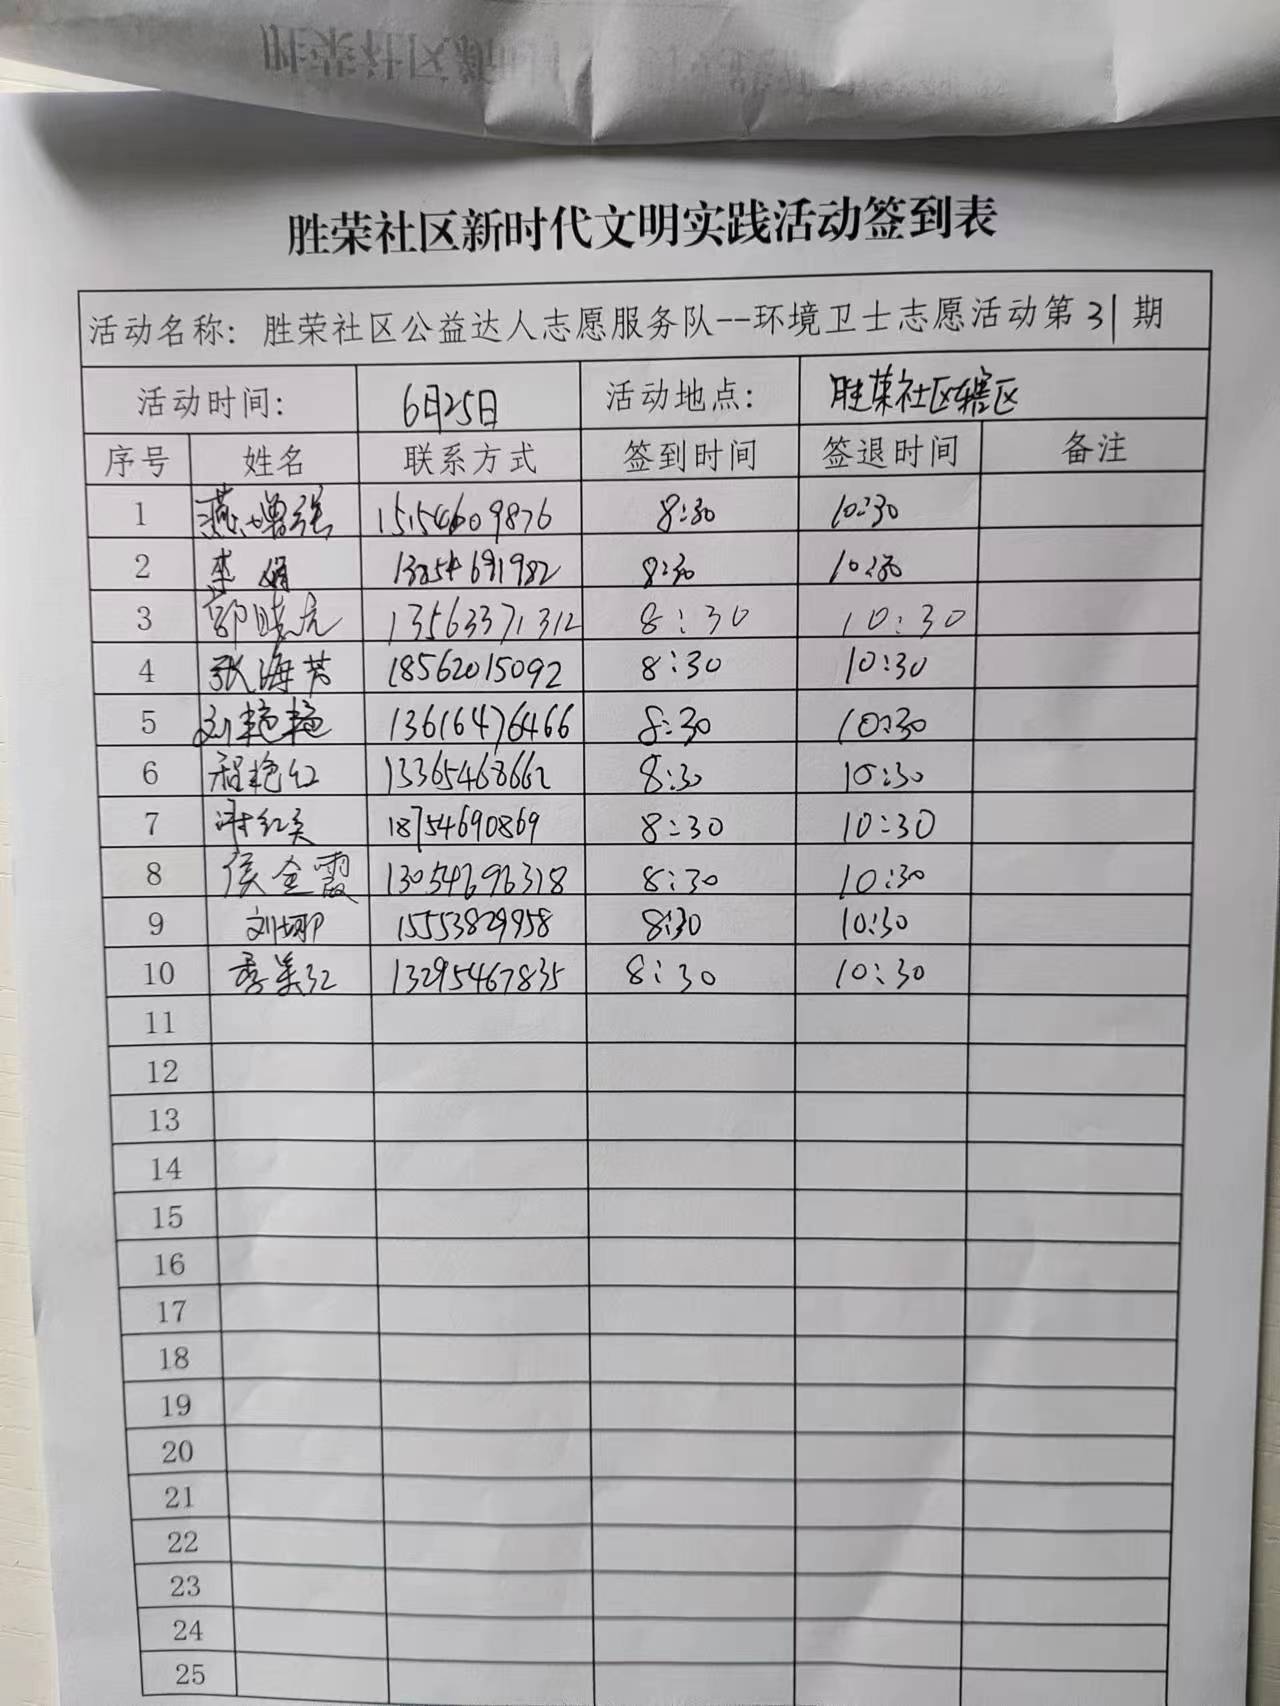 胜荣社区新时代文明实践活动签到表
活动名称：胜荣社区公益达人志愿服务队--环境卫士志愿活动第31期
活动时间： 6月25日 活动地点： 胜荣社区辖区
序号 姓名 联系方式 签到时间 签退时间 备注
1 燕增强 15154609876 8:30 10:30
2 李娟 8:30 10:30
3 郭晓虎 13563371312 8:30 10:30
4 张海芳 18562015092 8:30 10:30
5 刘艳艳 13616476466 8:30 10:30
6 程艳红 13365468662 8:30 10:30
7 谢红英 18754690869 8:30 10:30
8 侯金霞 13054696318 8:30 10:30
9 刘娜 15553829958 8:30 10:30
10 季美红 13295467835 8:30 10:30
11
12
13
14
15
16
17
18
19
20
21
22
23
24
25